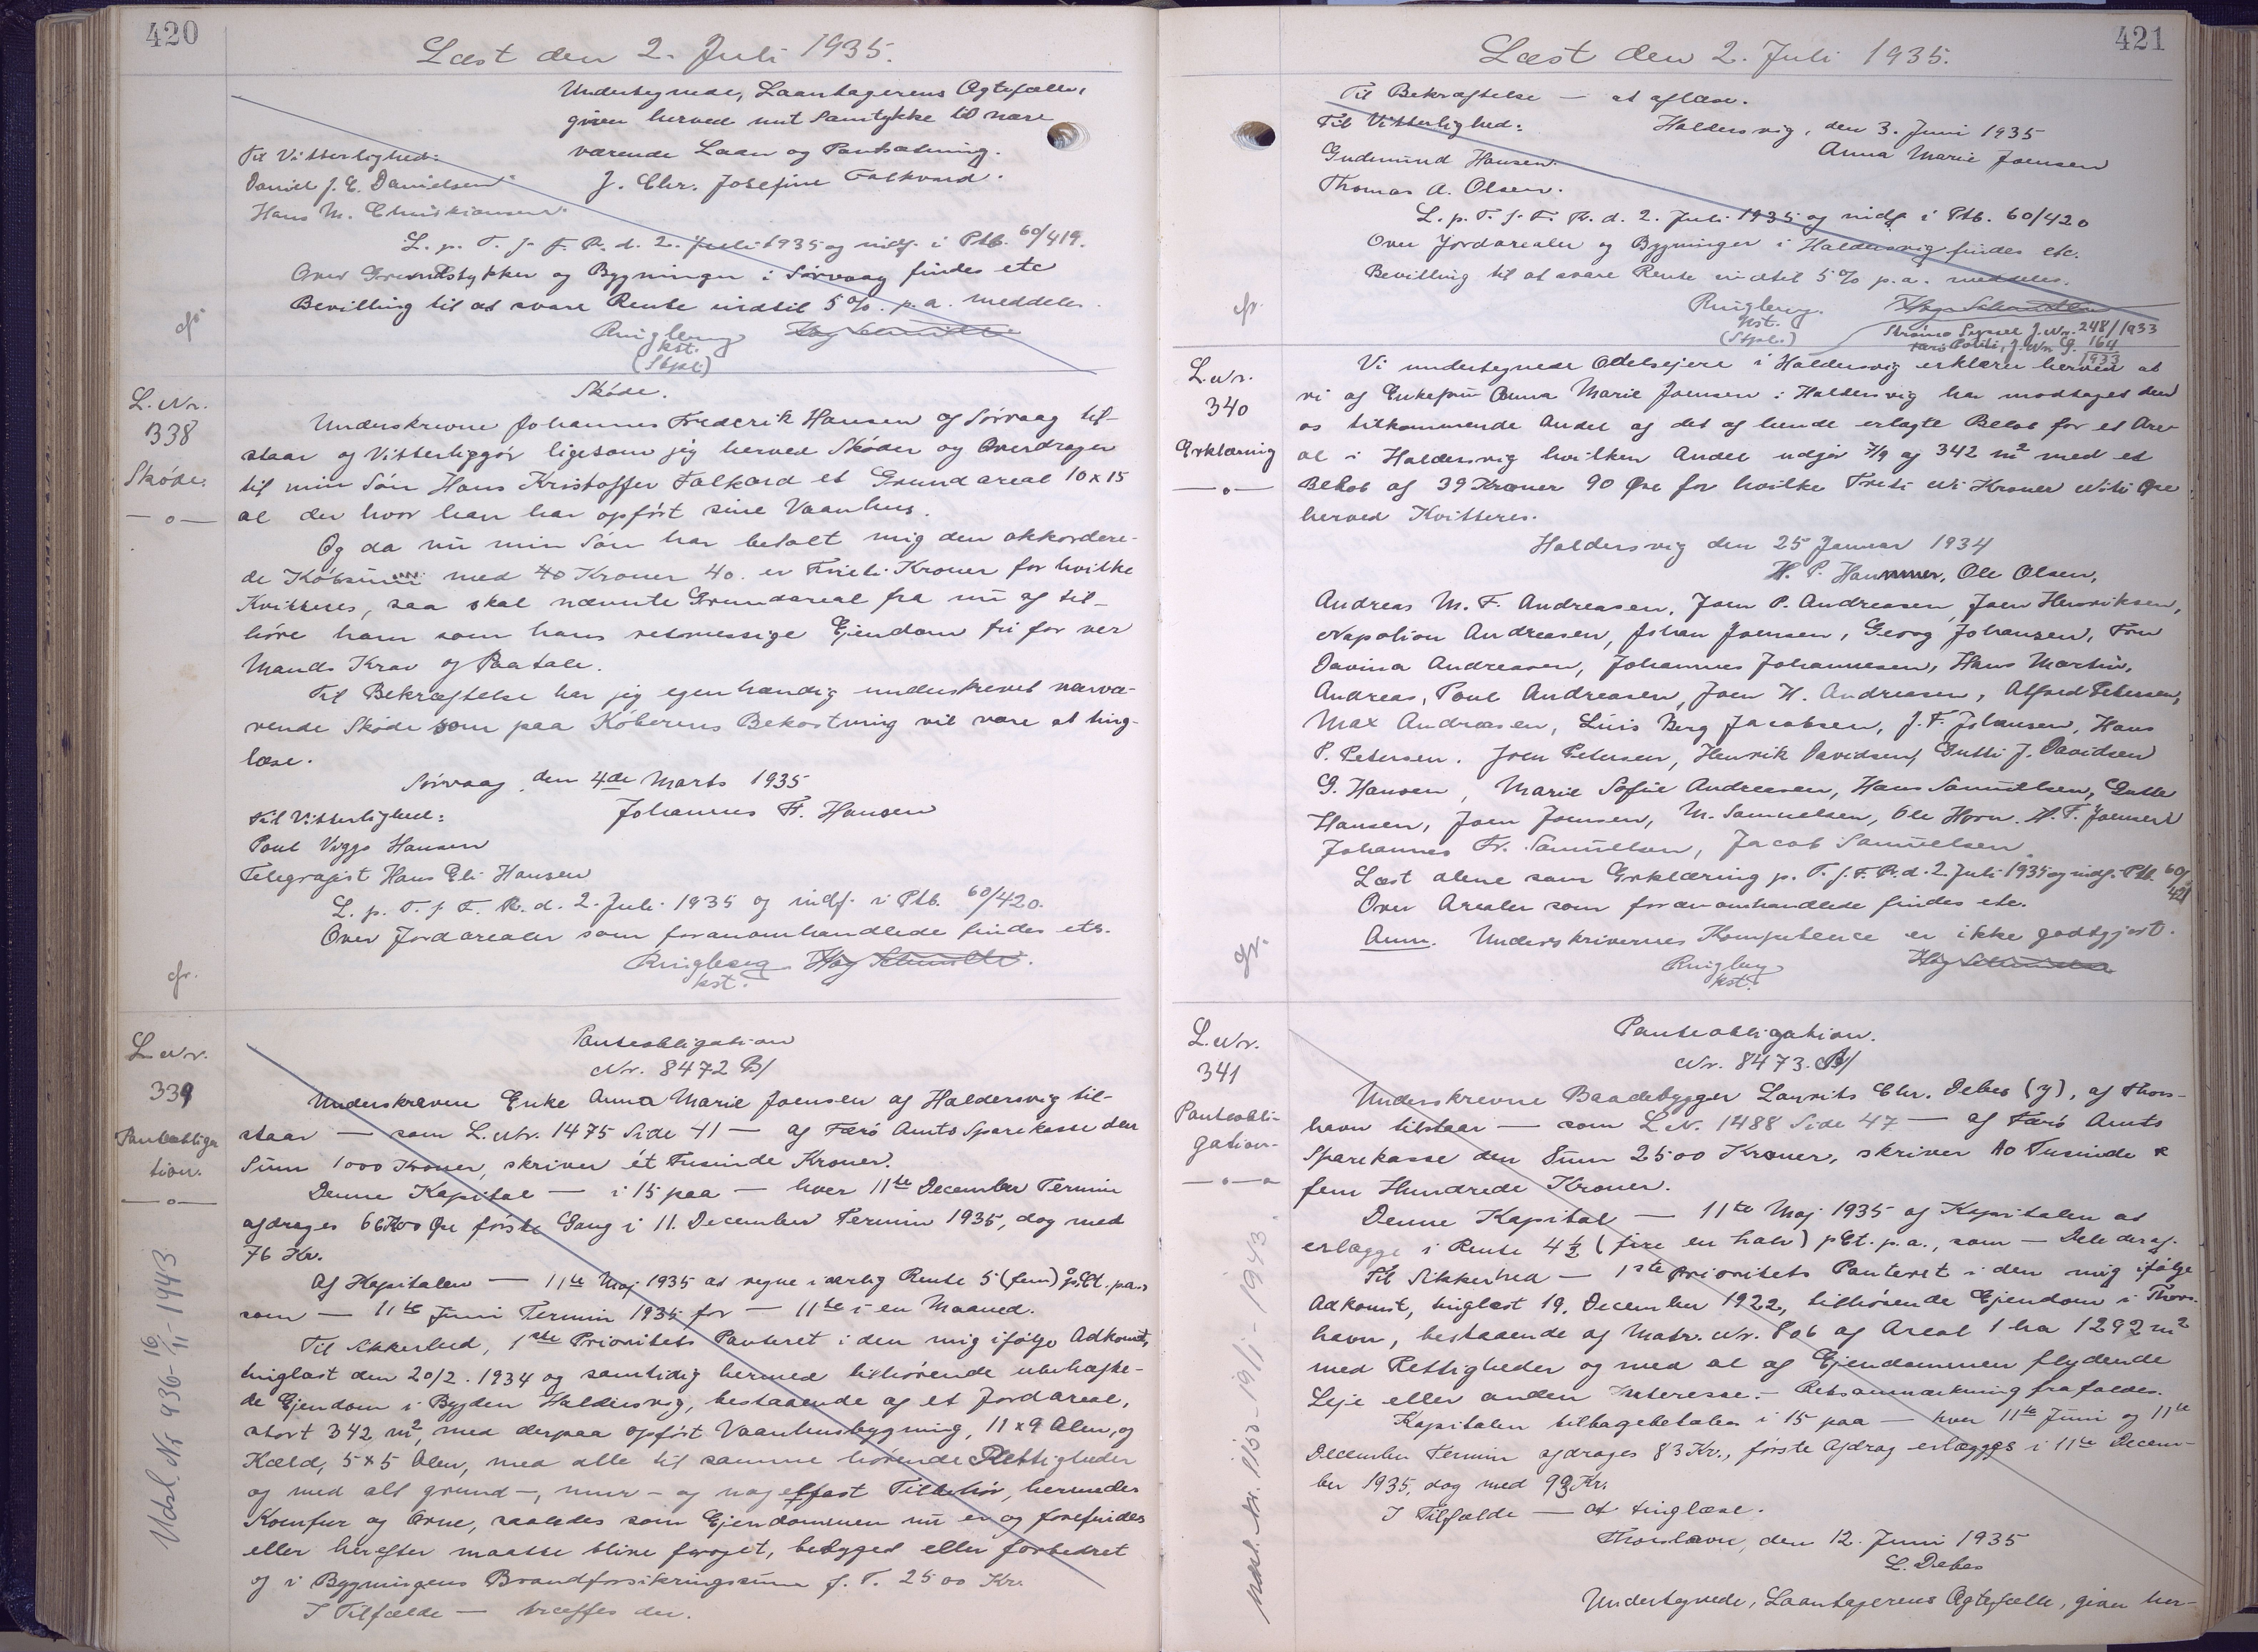 420
Læst den 2. Juli 1935.
Undertegnede, Laantagerens Ægtefælle,
giver herved mit Samtykke til nær-
værende Laan og Pantsætning.
Til Vitterlighed:
Daniel J. E. Danielsen
J. Chr. Josefine Falkvard.
Hans M. Christiansen.
L. p. T. f. F. R. d. 2. Juli 1935 og indf. i Ptb. 60/419.
Over Grundstykker og Bygninger i Sörvaag findes etc
Bevilling til at svare Rente indtil 5%. p.a. meddeles.
Ringberg
kst.
(Stpl.)
cfr.
L. Nr.
338
Skóde.
Skóde.
Underskrevne Johannes Frederik Hansen af Sörvaag til-
staar og Vitterliggór ligesom jeg herved Skóder og Overdrager
til min Són Hans Kristoffer Falkard et Grundareal 10 x 15
al der hvor han har opfórt sine Vaanhus.
Og da nu min Són har betalt mig den akkordere-
de Kóbsum med 40 Kroner 40. er Firti Kroner for hvilke
Kvitteres, saa skal nævnte Grundareal fra nu af til-
hóre ham som hans retsmessige Ejendom fri for ver
Mands Krav og Paatale.
Til Bekræftelse har jeg egenhændig underskrevet nærvæ-
rende Skóde som paa Kóberens Bekostning vil være at ting-
læse.
Sórvaag, den 4de Marts 1935
Til Vitterlighed:
Johannes F. Hansen
Poul Viggo Hansen
Telegrafist Hans Eli Hansen
L. p. T. f. F. R. d. 2. Juli 1935 og indf. i Ptb. 60/420.
Over Jordarealer som foranomhandlede findes etc.
Ringberg
kst.
cfr.
L. Nr.
339
Panteobliga
tion.
Panteobligation
Nr. 8472 B/
Underskrevne Enke Anna Marie Joensen af Haldersvig til-
staar — som L. Nr. 1475 Side 41 — af Færó Amts Sparekasse den
Sum 1000 Kroner, skriver ét Tusinde Kroner.
Denne Kapital — i 15 paa — hver 11te December Termin
afdrages 66 Kr 00 Øre fórste Gang i 11. December Termin 1935, dog med
76 Kr.
Af Kapitalen — 11te Maj 1935 at regne i aarlig Rente 5 (fem) pCt. p.a.,
som — 11te Juni Termin 1935 for — 11te i en Maaned.
Til Sikkerhed, 1ste Prioritets Panteret i den mig ifølge Adkomst,
tinglæst den 20/2. 1934 og samtidig hermed tilhórende ubehæfte-
de Ejendom i Bygden Haldersvig, bestaaende af et Jordareal,
stort 342 m², med derpaa opfórt Vaanhusbygning, 11 x 9 Alen, og
Kæld, 5 x 5 Alen, med alle til samme hórende Rettigheder
og med alt grund-, mur- og nagelfast Tilbehór, herunder
Komfur og Ovne, saaledes som Ejendommen nu er og forefindes
eller herefter maatte blive forøget, bebygget eller forbedret
og i Bygningens Brandforsikringssum f. T. 2500 Kr.
I Tilfælde — træffes der.
Udsl. Nr 936 - 16/11 - 1943
421
Læst den 2. Juli 1935.
Til Bekræftelse — at aflæse.
Til Vitterlighed:
Haldersvig, den 3. Juni 1935
Gudmund Hansen.
Anna Marie Joensen
Thomas A. Olsen.
L. p. T. f. F. R. d. 2. Juli 1935 og indf i Ptb. 60/420
Over Jordarealer og Bygninger i Haldersvig findes etc.
Bevilling til at svare Rente indtil 5% p.a. meddeles.
Ringberg.
kst.
(Stpl.)
Strómó Syssel J. Nr. 248/1933
Færó Politi, J. Nr. G. 164/1933
cfr.
L. Nr.
340
Erklæring
Vi undertegnede Odelsejere i Haldersvig erklærer herved at
vi af Enkefru Anna Marie Joensen i Haldersvig har modtaget den
os tilkommende Andel af det af hende erlagte Beløb for et Are-
al i Haldersvig hvilken Andel udgór 7/9 af 342 m² med et
Beløb af 39 Kroner 90 Øre for hvilke Treti Ni Kroner Niti Øre
herved Kvitteres.
Haldersvig den 25 Januar 1934
H. P. Hammer, Ole Olsen,
Andreas M. F. Andreasen, Joen P. Andreasen, Joen Henriksen,
Napolion Andreasen, Johan Joensen, Georg Johansen, Fru
Davina Andreasen, Johannes Johannesen, Hans Martin,
Andreas, Poul Andreasen, Joen H. Andreasen, Alfred Petersen,
Max Andræsen, Luis Berg Jacobsen, J. F. Johansen, Hans
P. Petersen. Joen Petersen, Henrik Davidsen, Gutti J. Davidsen
G. Hansen, Marie Sofie Andreasen, Hans Samuelsen, Gutte
Hansen, Joen Joensen, M. Samuelsen, Ole Horn. H. F. Joensen
Johannes Fr. Samuelsen, Jacob Samuelsen.
Læst alene som Erklæring p. T. f. F. R. d. 2 Juli 1935 og indf. Ptb. 60/421
Over Arealer som foranomhandlede findes etc.
Anm. Underskrivernes Kompetence er ikke godtgjort.
Ringberg
kst.
cfr.
L. Nr.
341
Panteobli-
gation.
Panteobligation.
Nr. 8473. B/
Underskrevne Baadebygger Laurits Chr. Debes (y), af Thors-
havn tilstaar — som L. N. 1488 Side 47 — af Færó Amts
Sparekasse den Sum 2500 Kroner, skriver to Tusinde &
fem Hundrede Kroner.
Denne Kapital — 11te Maj 1935 af Kapitalen at
erlægge i Rente 4½ (fire en halv) pCt. p.a., som — Dele deraf.
Til Sikkerhed — 1ste Prioritets Panteret i den mig ifølge
Adkomst, tinglæst 19. December 1922, tilhørende Ejendom i Thors-
havn, bestaaende af Matr. Nr. 806 af Areal 1 ha 1292 m²
med Rettigheder og med al af Ejendommen flydende
Leje eller anden Interesse. — Retsanmærkning frafaldes.
Kapitalen tilbagebetales i 15 paa — hver 11te Juni og 11te
December Termin afdrages 83 Kr., første Afdrag erlægges i 11te Decem-
ber 1935, dog med 93 Kr.
I Tilfælde — at tinglæse.
Thorshavn, den 12. Juni 1935
L. Debes
Undertegnede, Laantagerens Ægtefælle, giver her-